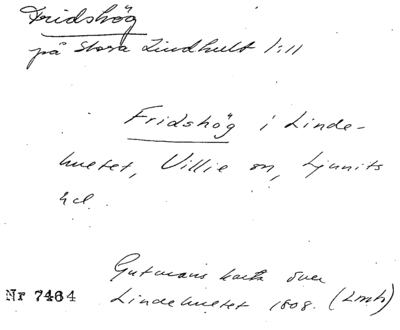 Fridshög
på Stora Lindhult 1:11
Fridshög i Linde-
hultet, Villie sn, Ljunits
hd.
Gutmans karta över
Nr 7464 Lindehultet 1808. (Lmh)